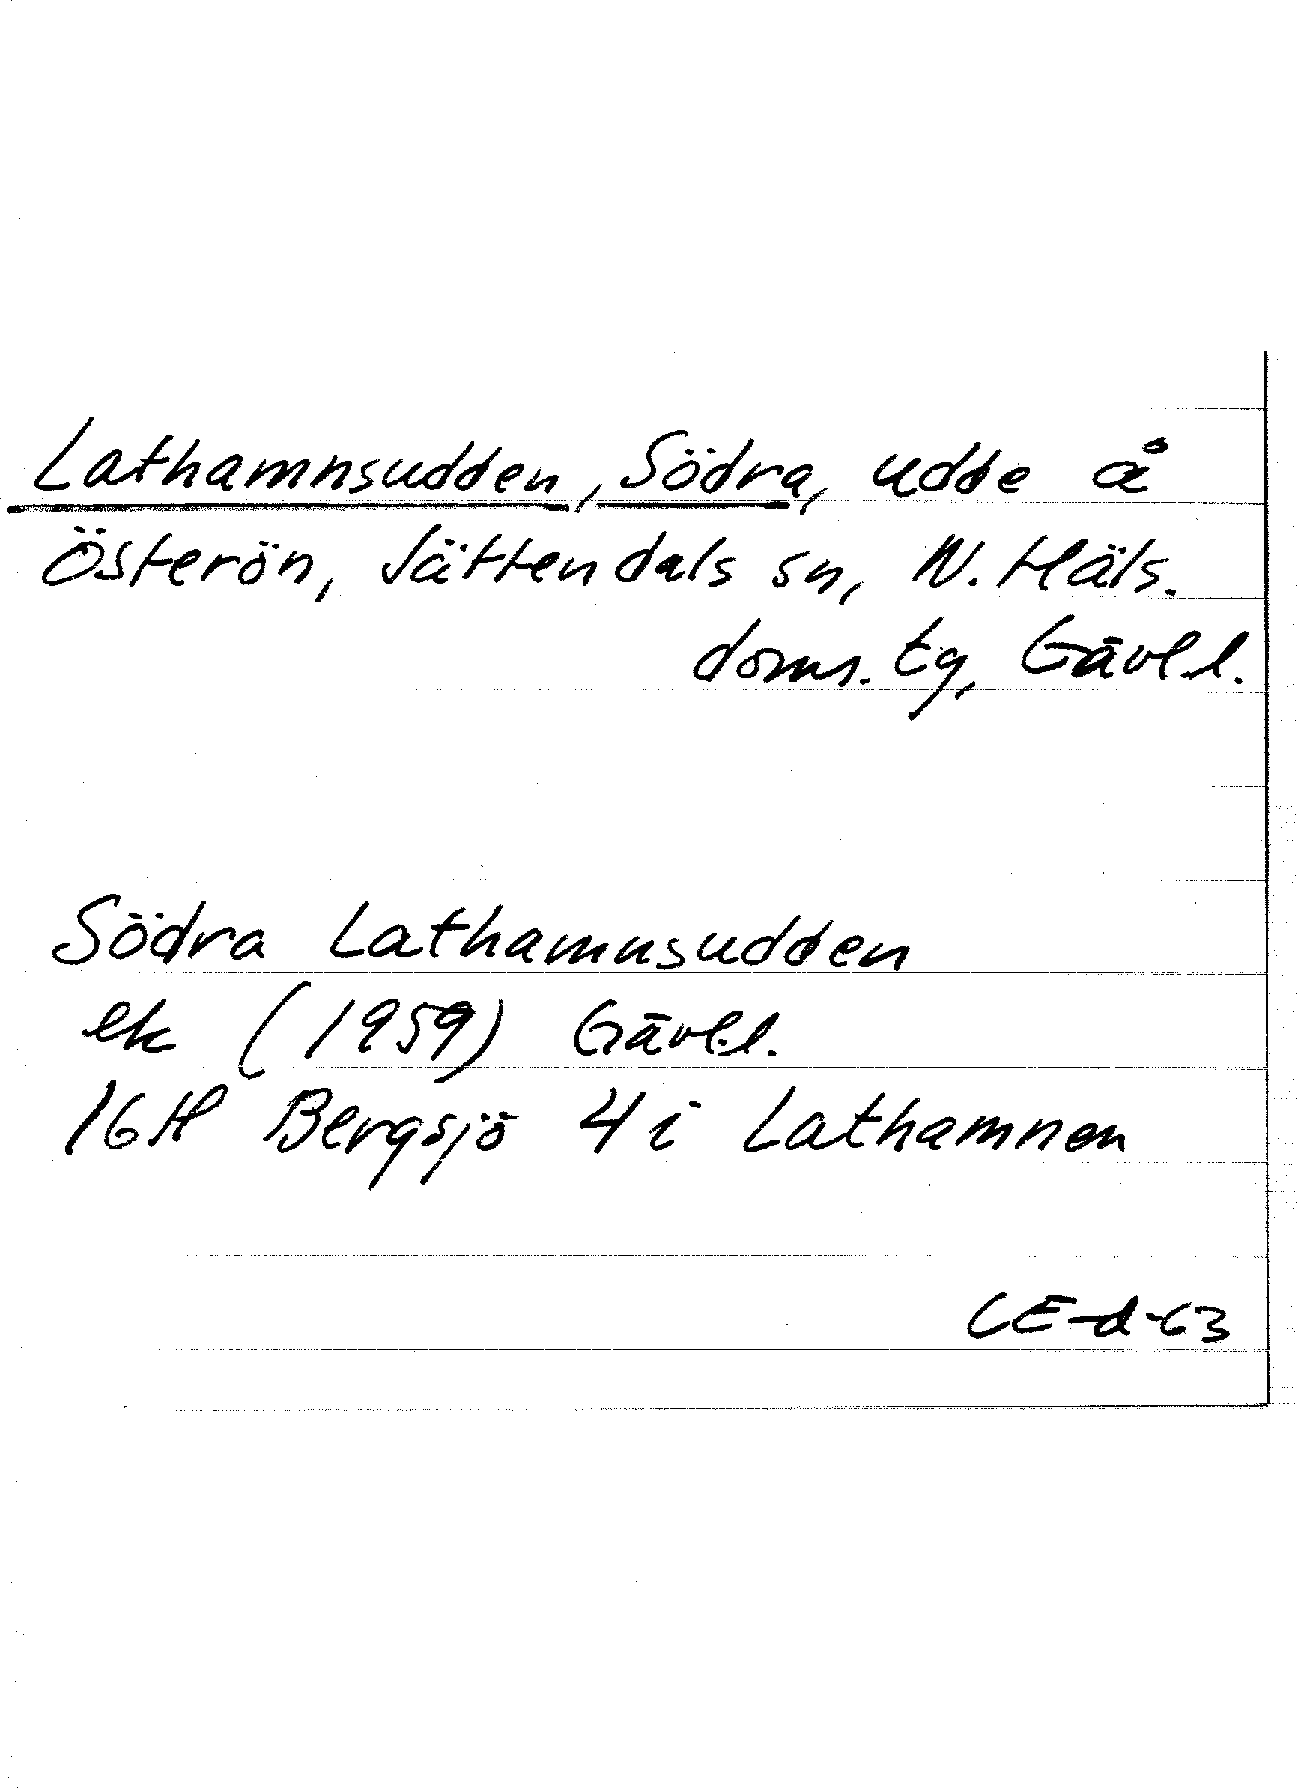 Lathamnsudden, Södra, udde å
Österön, Jättendals sn, N. Häls.
doms. tg, Gävl.l.
Södra Lathamnsudden
ek (1959) Gävl.l.
16H Bergsjö 4i Lathamnen
CE-d-63